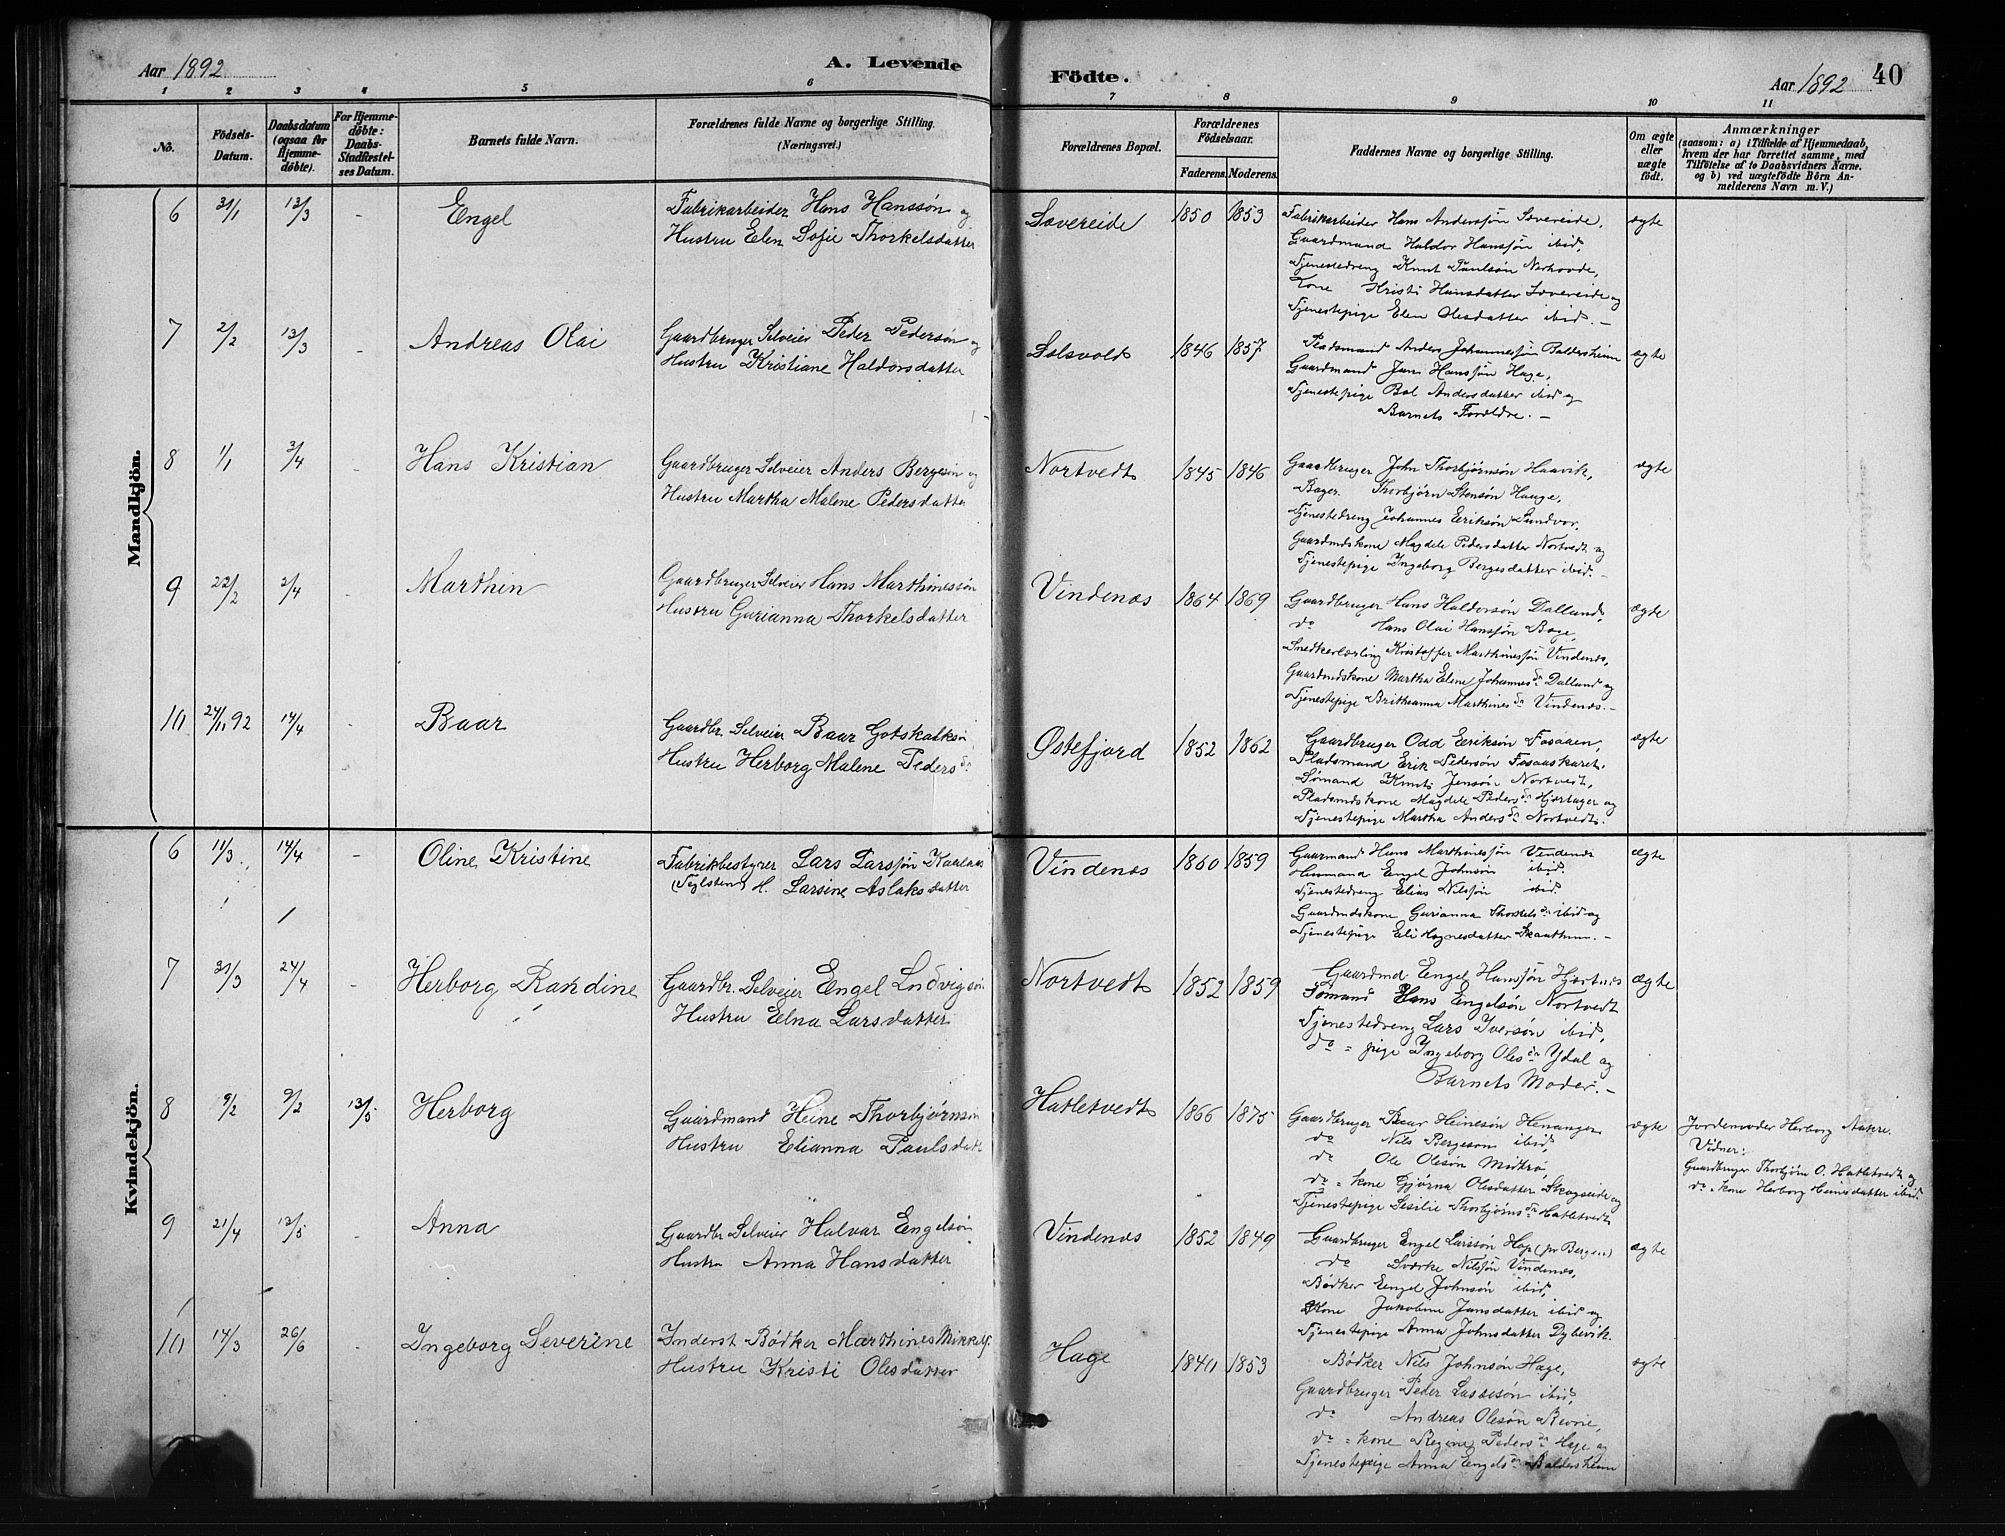 Aar 1892
A. Levende
Födte.
Aar 1892
40
1 2 3 4 5 6 7 8 9 10 11
No.
Födsels-Datum.
Daabsdatum (ogsaa for Hjemmedöbte).
For Hjemmedöbte: Daabs-Stadfæstelses Datum.
Barnets fulde Navn.
Forældrenes fulde Navne og borgerlige Stilling.
(Næringsvei.)
Forældrenes Bopæl.
Forældrenes Födselsaar.
Faderens. Moderens.
Faddernes Navne og borgerlige Stilling.
Om ægte eller uægte födt.
Anmærkninger
(saasom: a) i Tilfælde af Hjemmedaab, hvem der har forrettet samme, med Tilföielse af to Daabsvidners Navne. og b) ved uægtefödte Börn Anmelderens Navn m. V.)
Mandkjön.
6 31/1 13/3 - Engel
Fabrikarbeider Hans Hanssön og
Hustru Elen Sofie Thorkelsdatter
Sævereide 1850 1853
Fabrikarbeider Hans Anderssön Sævereide,
Gaardmand Haldor Hanssön ibid,
Tjenestedreng Knut Paulsön Norhovde,
Kone Kristi Hansdatter Sævereide og
Tjenestepige Elen Olesdatter ibid. -
ægte
7 2/2 13/3 - Andreas Olai
Gaardbruger Selveier Peder Pedersön og
Hustru Kristiane Haldorsdatter
Solsvold 1846 1857
Pladsmand Anders Johannessön Baldersheim
Gaardmand Jans Hanssön Hage,
Tjenestepige Bol Andersdatter ibid og
Barnets Forældre. -
ægte
8 1/1 3/4 - Hans Kristian
Gaardbruger Selveier Anders Bergesön og
Hustru Martha Malene Pedersdatter
Nortvedt 1845 1846
Gaardbruger John Thorbjørnsön Haavik,
Bager Thorbjörn Stensön Hauge,
Tjenestedreng Johannes Eriksön Sundvor,
Gaardmdskone Magdele Pedersdatter Nortvedt og
Tjenestepige Ingeborg Bergesdatter ibid. -
ægte
9 22/2 3/4 - Marthin
Gaardbruger Selveier Hans Marthinessön
Hustru Gurianna Thorkelsdatter
Vindenæs 1864 1869
Gaardbruger Hans Haldorsön Dalland,
do Hans Olai Hanssön Boge,
Snedkerlærling Kristoffer Marthinessön Vindenæs,
Gaardmdskone Martha Elene Johannesdr Dalland og
Tjenestepige Britheanna Marthinesdr Vindenæs. -
ægte
10 24/11 92 14/4 - Baar
Gaardbr. Selveier Baar Gotskalksö
Hustru Herborg Malene Pedersdr
Østefjord 1852 1862
Gaardbruger Odd Eriksön Fosaaen,
Pladsmand Erik Pedersön Fosaaskaret,
Sømand Knut Jensön Nortvedt,
Pladsmdskone Magdele Pedersdr Hjertager og
Tjenestepige Martha Andersdr Nortvedt.
ægte
Kvindekjön.
6 11/3 14/4 - Oline Kristine
Fabrikbestyrer Lars Larssön
(Teglsten) H. Larsine Aslaksdatter
Vindenæs 1860 1859
Gaarmand Hans Marthinessön Vindenæs
Husmand Engel Johnsön ibid.
Tjenestedreng Elias Nilsön ibid.
Gaardmdskone Gurianna Thorkelsdr ibid og
Tjenestepige Eli Hognesdatter -
ægte
7 31/3 24/4 - Herborg Randine
Gaardbr. Selveier Engel Ludvigsön
Hustru Elna Larsdatter
Nortvedt 1852 1859
Gaardmd Engel Hanssön Hjertnes
Sømand Hans Engelsön Nortvedt
Tjenestedreng Lars Iversön ibid,
do = pige Ingeborg Olesdr Ydal og
Barnets Moder. -
ægte
8 9/2 9/2 13/5 Herborg
Gaardmand Heine Thorbjørnsön
Hustru Elianna Paulsdatt
Hatletvedt 1866 1875
Gaardbruger Baar Heinesön Henanger
do Nils Bergeson ibid,
do Ole Olesön Midtbø,
do = kone Gjørna Olesdatter Skogseide og
Tjenestepige Sesilie Thorbjørnsdr Hatletvedt
ægte
Jordemoder Herborg Aakre.
Vidner:
Gaardbruger Thorbjörn O. Hatletvedt og
do = kone Herborg Heinesdatter ibid.
9 21/4 13/5 - Anna
Gaardbr. Selveier Halvar Engelsön
Hustru Anna Hansdatter
Vindenæs 1852 1849
Gaardbruger Engel Larssön Hop (pr Bergen)
do Sverke Nilssön Vindenæs,
Bødker Engel Johnsön ibid,
Kone Jakobine Jansdatter ibid og
Tjenestepige Anna Johnsdatter Dybevik.
ægte
10 14/3 26/6 Ingeborg Severine
Inderst Bødker Marthines Mikkels.
Hustru Kristi Olesdatter
Hage 1840 1853
Bødker Nils Johnsön Hage,
Gaardbruger Peder Lassesön ibid,
do Andreas Olesön Revne,
do = kone Regine Pedersdr Hage og
Tjenestepige Anna Engelsdr Baldersheim
ægte